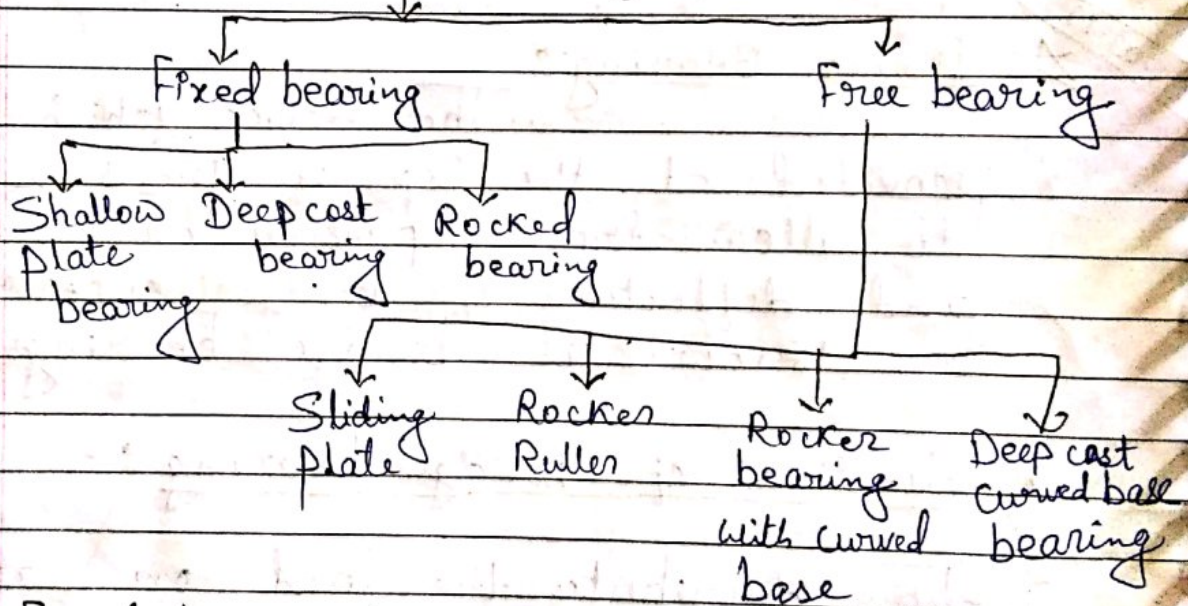 Fixed bearing
Free bearing
Shallow
plate
bearing
Deep cast
bearing
Rocked
bearing
Sliding
plate
Rocker
Ruller
Rocker
bearing
with curved
base
Deep cast
curved base
bearing